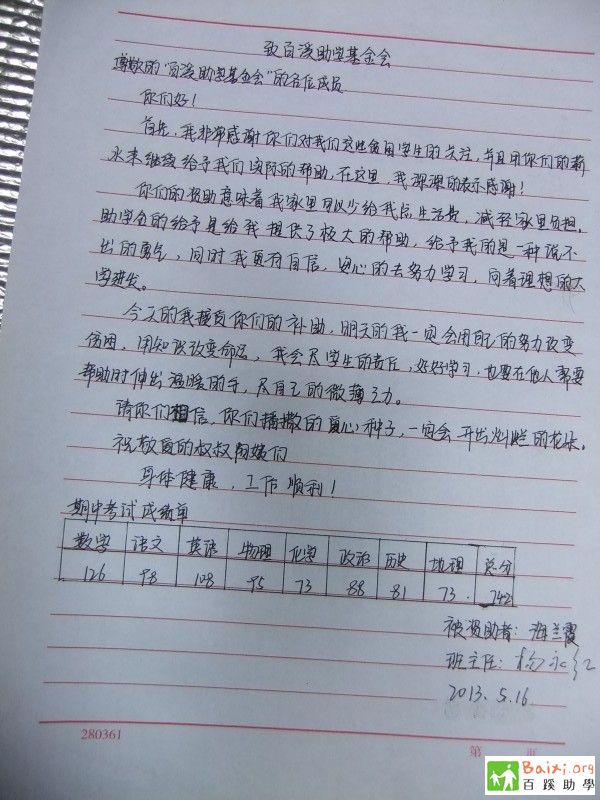 致百溪助学基金会
尊敬的“百溪助学基金会”的各位成员
你们好！
首先，我非常感谢你们对我们这些贫困学生的关注，并且用你们的薪
水来继续给予我们实际的帮助，在这里，我深深的表示感谢！
你们的资助意味着我家里可以少给我点生活费，减轻家里负担。
助学金的给予是给我提供了极大的帮助，给予我的是一种说不
出的勇气，同时我更有自信，安心的去努力学习，向着理想的大
学进发。
今天的我接受你们的补助，明天的我一定会用自己的努力改变
贫困，用知识改变命运，我会尽学生的责任，好好学习，也要在他人需要
帮助时伸出温暖的手，尽自己的微薄之力。
请你们相信，你们播撒的爱心种子，一定会开出灿烂的花朵。
祝敬爱的叔叔阿姨们
身体健康，工作顺利！
期中考试成绩单
数学 语文 英语 物理 化学 政治 历史 地理 总分
126 98 108 95 73 88 81 73. 742
被资助者：海兰霞
班主任：杨永红
2013.5.16.
280361
第 页
Baixi.org
百蹊助學